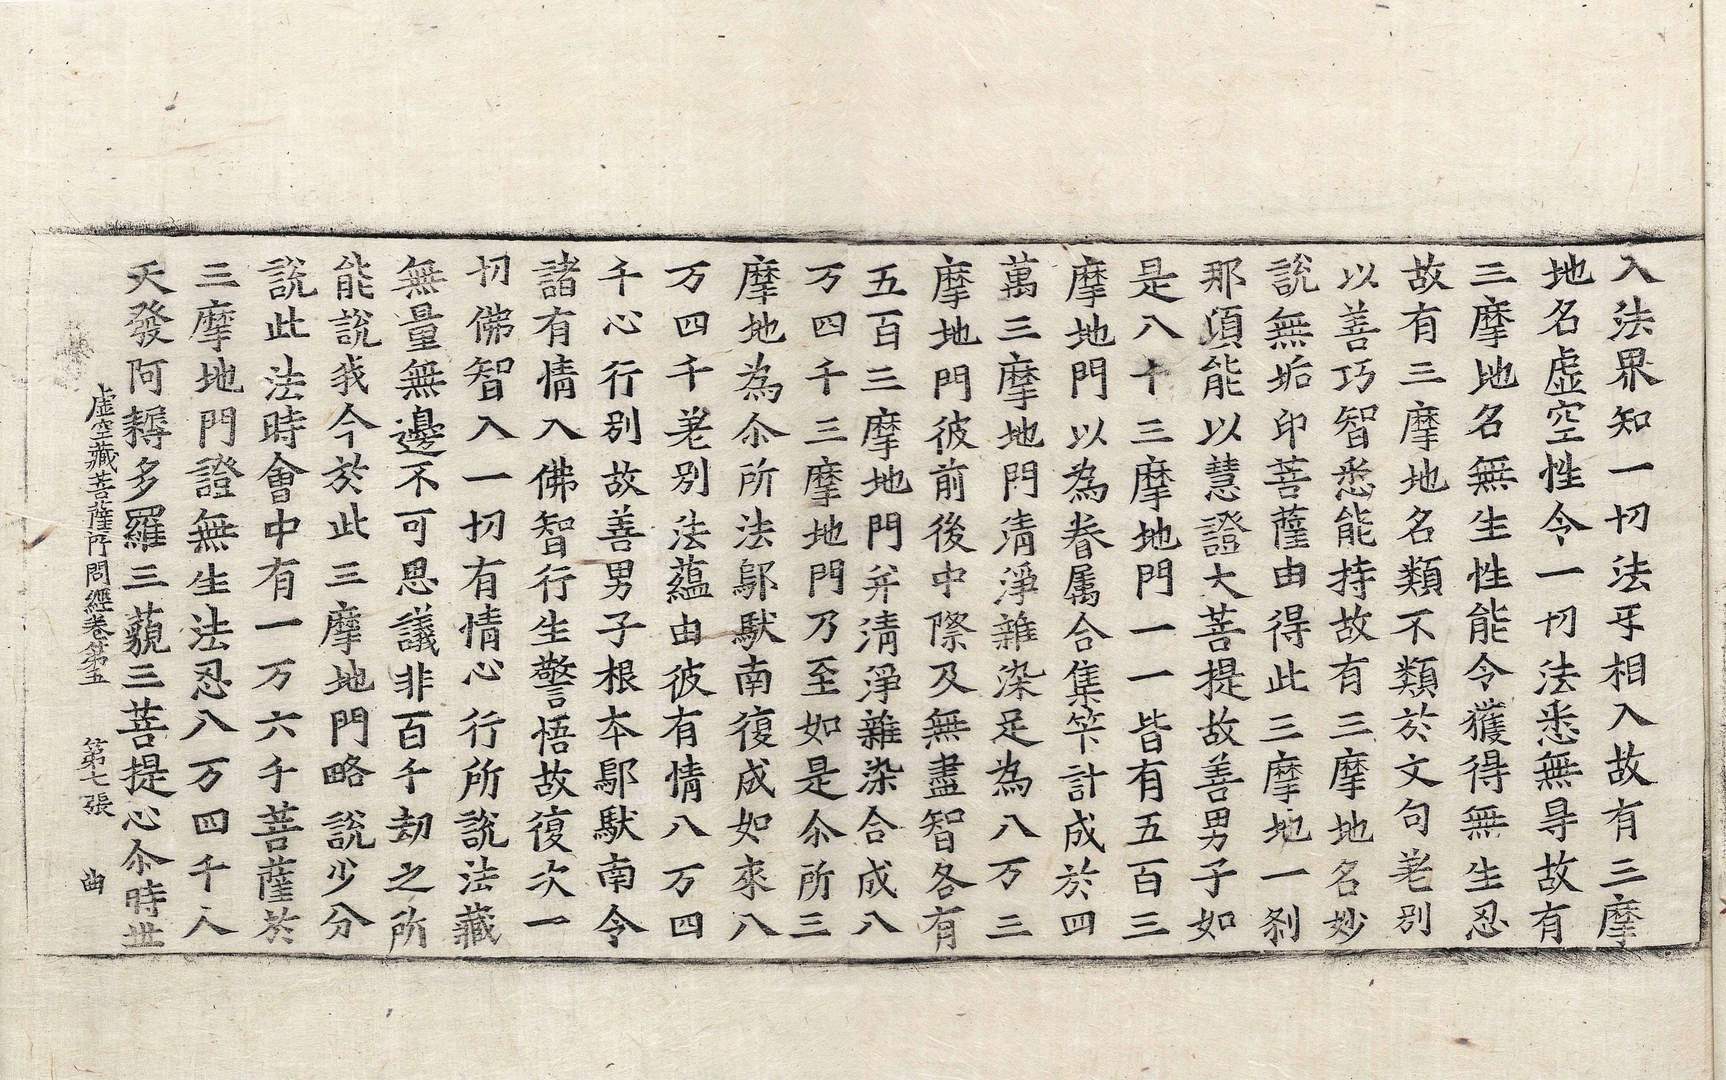 入法界知一切法平相入故有三摩
地名虛空性令一切法悉無㝵故有
三摩地名無生性能令獲得無生忍
故有三摩地名類不類於文句差別
以善巧智悉能持故有三摩地名妙
說無垢印菩薩由得此三摩地一刹
那頃能以慧證大菩提故善男子如
是八十三摩地門一一皆有五百三
摩地門以為眷属合集筭計成於四
萬三摩地門清淨雜染足為八万三
摩地門彼前後中際及無盡智各有
五百三摩地門并清淨雜染合成八
万四千三摩地門乃至如是尒所三
摩地為尒所法鄔馱南復成如來八
万四千差別法蘊由彼有情八万四
千心行別故善男子根本鄔馱南令
諸有情入佛智行生警悟故復次一
切佛智入一切有情心行所說法藏
無量無邊不可思議非百千劫之所
能說我今於此三摩地門略說少分
說此法時會中有一万六千菩薩於
三摩地門證無生法忍八万四千人
天發阿耨多羅三藐三菩提心尒時世
虛空藏菩薩所問經卷第五 第七張 曲